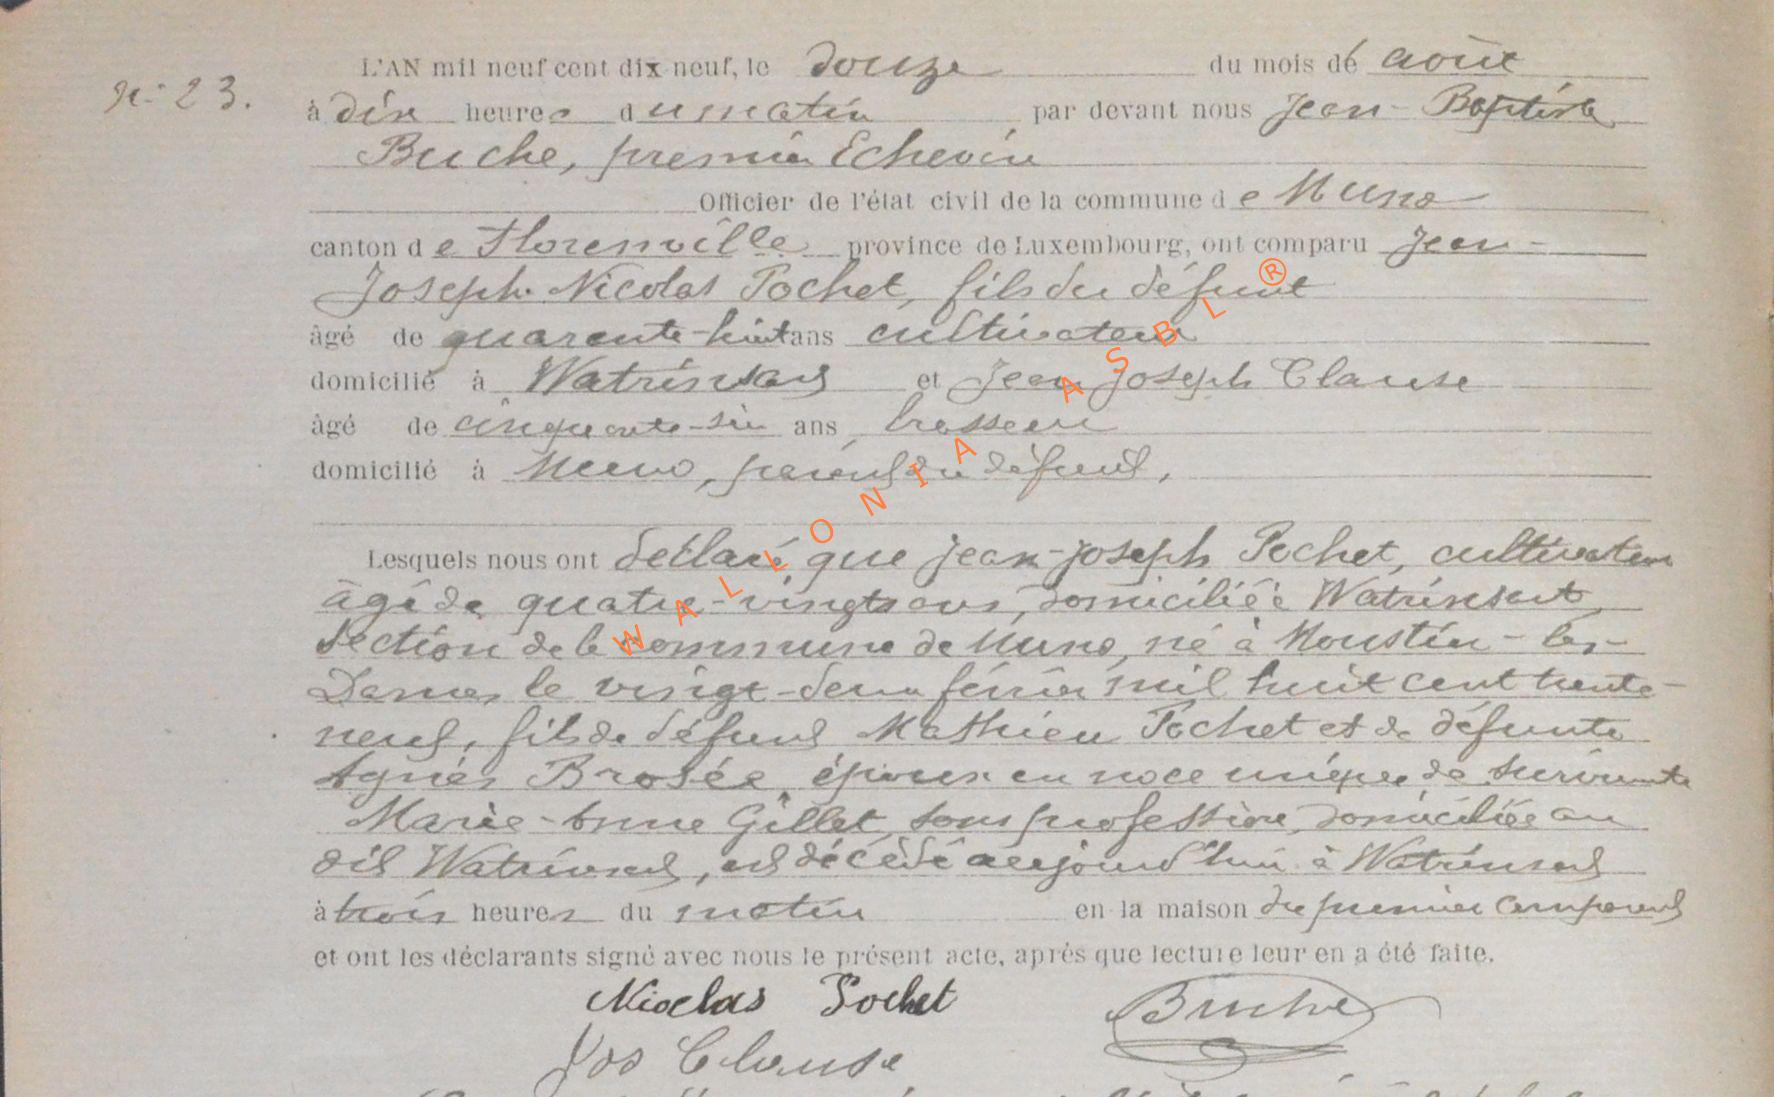 N° 23.
L'AN mil neuf cent dix-neuf, le douze du mois de août
à dix heures du matin par devant nous Jean-Baptiste
Buche, premier Echevin
Officier de l'état civil de la commune de Muno
canton de Florenville province de Luxembourg, ont comparu Jean-
Joseph Nicolas Pochet, fils du défunt
âgé de quarante-huit ans cultivateur
domicilié à Watrinsart et Jean Joseph Clause
âgé de cinquante-six ans, brasseur
domicilié à Muno, parent du défunt,
Lesquels nous ont déclaré que Jean-Joseph Pochet, cultivateur
âgé de quatre-vingts ans, domicilié à Watrinsart,
section de la commune de Muno, né à Moustier-les-
Dames le vingt-deux février mil huit cent trente-
neuf, fils de défunt Mathieu Pochet et de défunte
Agnès Brosée, époux en noce unique de survivante
Marie-Anne Gillet, sans profession, domiciliée au
dit Watrinsart, est décédé aujourd'hui à Watrinsart
à trois heures du matin en la maison du premier comparant
et ont les déclarants signé avec nous le présent acte, après que lecture leur en a été faite.
Nicolas Pochet Buche
Jos Clause
WALLONIA ASBL ®